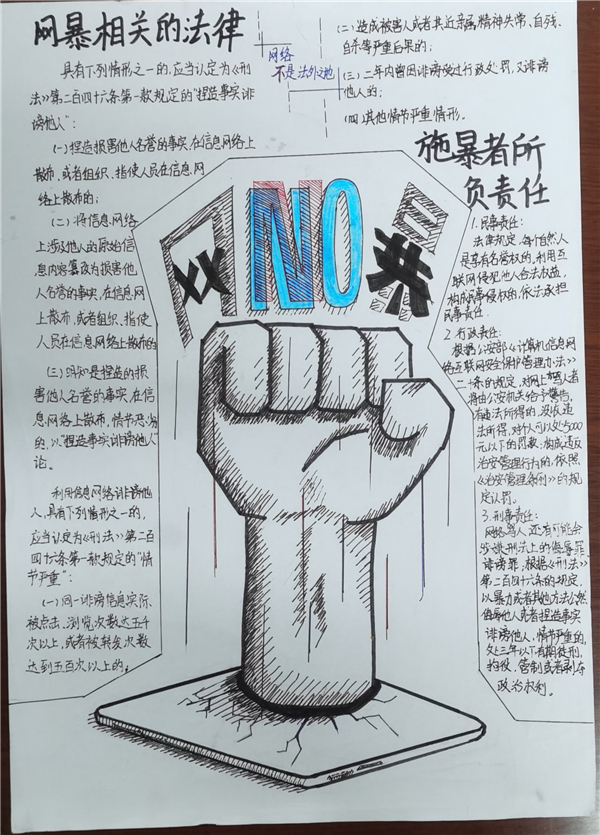 网暴相关的法律
具有下列情形之一的,应当认定为《刑
法》第二百四十六条第一款规定的"捏造事实诽
谤他人":
(一)捏造损害他人名誉的事实,在信息网络上
散布,或者组织、指使人员在信息网
络上散布的;
(二)将信息网络
上涉及他人的原始信
息内容篡改为损害他
人名誉的事实,在信息网
上散布,或者组织、指使
人员在信息网络上散布的
(三)明知是捏造的损
害他人名誉的事实,在信
息网络上散布,情节恶劣
的,以"捏造事实诽谤他人"
论。
利用信息网络诽谤他
人,具有下列情形之一的,
应当认定为《刑法》第二百
四十六条第一款规定的"情
节严重":
(一)同一诽谤信息实际
被点击、浏览次数达五千
次以上,或者被转发次数
达到五百次以上的;
网络
不是法外之地
(二)造成被害人或者其近亲属精神失常、自残、
自杀等严重后果的;
(三)二年内曾因诽谤受过行政处罚,又诽谤
他人的;
(四)其他情节严重情形。
网 NO 暴
施暴者所
负责任
1.民事责任:
法律规定,每个自然人
是享有名誉权的,利用互
联网侵犯他人合法权益,
构成民事侵权的,依法承担
民事责任.
2.行政责任:
根据公安部《计算机信息网
络互联网安全保护管理办法》
二十条的规定,对网上骂人者
将由公安机关给予警告,
有违法所得的,没收违
法所得,对个人可以处5000
元以下的罚款;构成违反
治安管理行为的,依照
《治安管理条例》的规
定认罚。
3.刑事责任:
网络骂人,还有可能会
涉嫌刑法上的侮辱罪
诽谤罪;根据《刑法》
第二百四十六条的规定,
以暴力或者其他方法公然
侮辱他人或者捏造事实
诽谤他人,情节严重的,
处三年以下有期徒刑、
拘役、管制或者剥夺
政治权利。